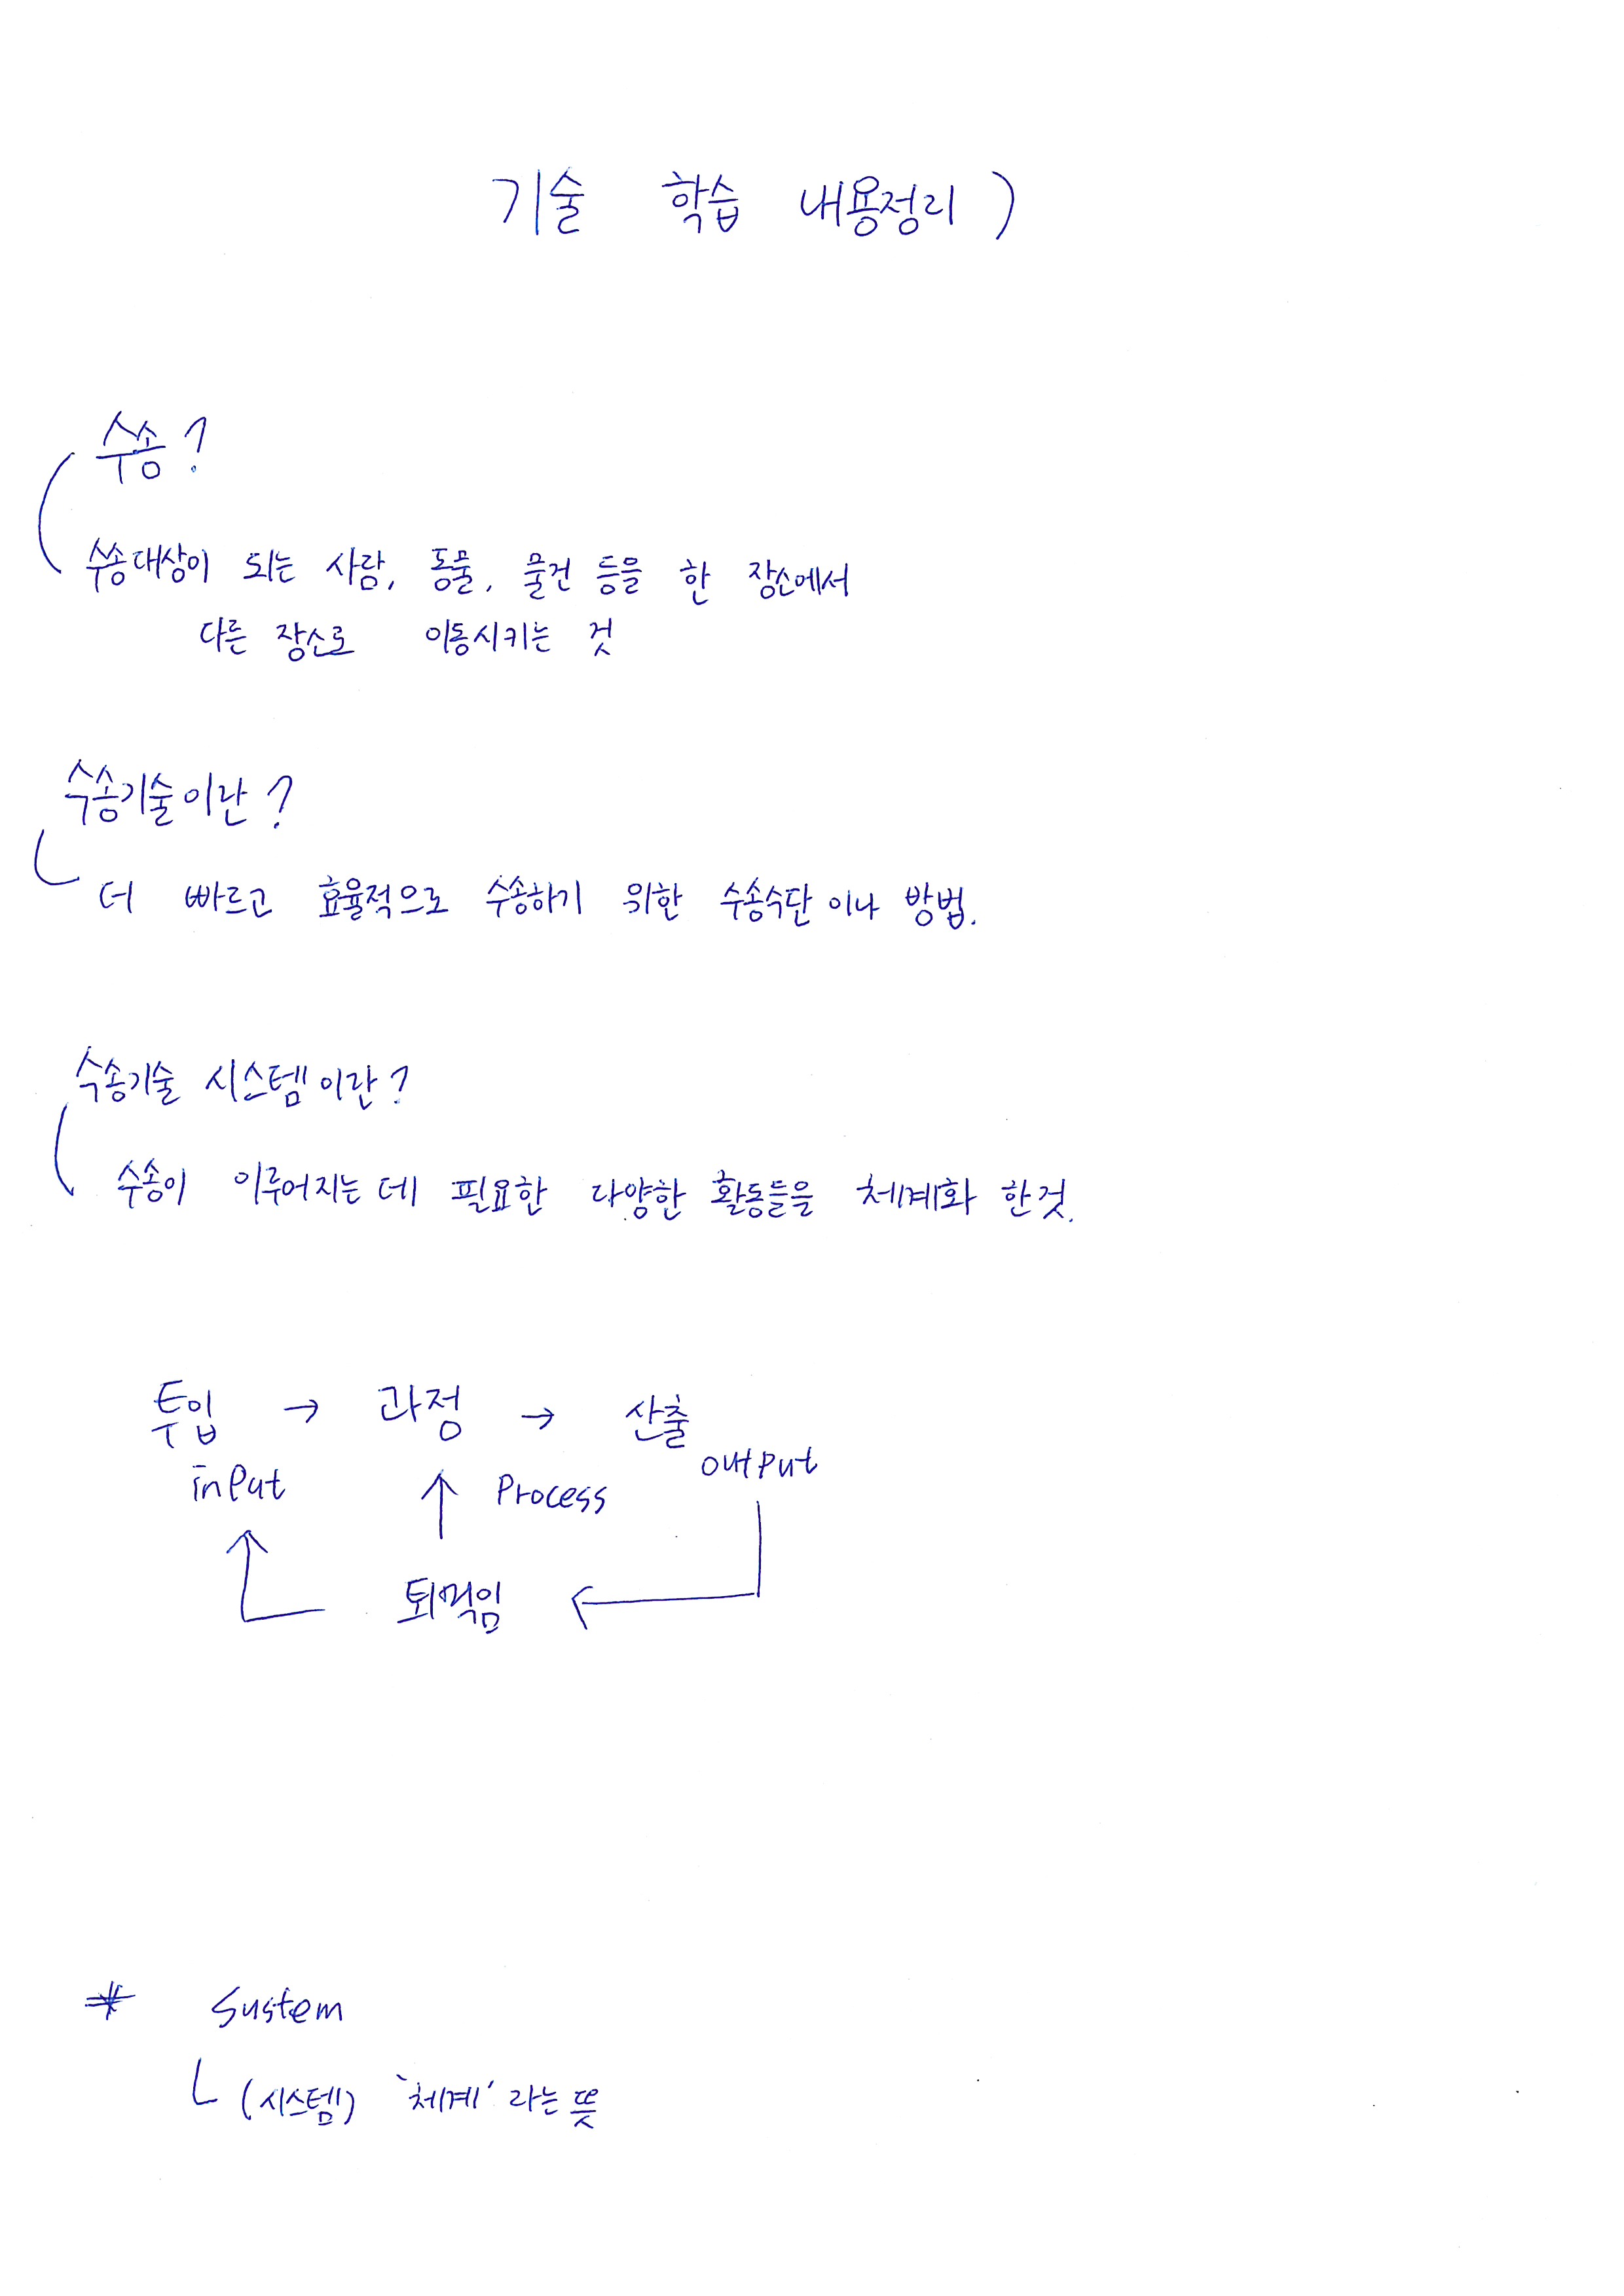 기술 학습 내용정리)
수송?
수송대상이 되는 사람, 동물, 물건 등을 한 장소에서
다른 장소로 이동시키는 것
수송기술이란?
더 빠르고 효율적으로 수송하기 위한 수송수단이나 방법.
수송기술 시스템이란?
수송이 이루어지는데 필요한 다양한 활동들을 체계화 한것.
투입 → 과정 → 산출
input ↑ Process output
퇴먹임 ←
* System
(시스템) '체계'라는 뜻